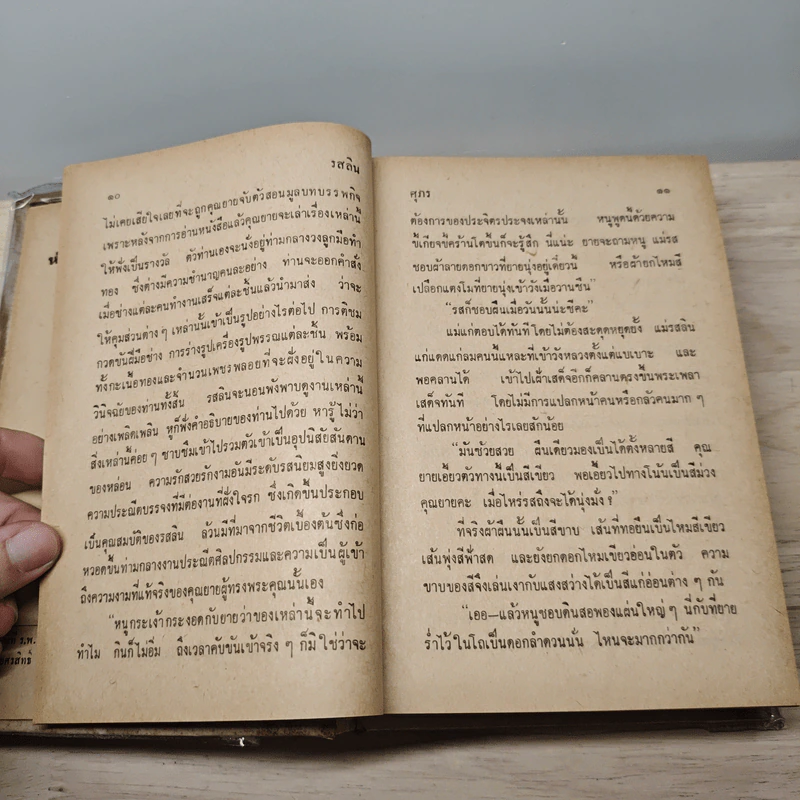 รสลิน
๑๐
ไม่เคยเสียใจเลยที่จะถูกคุณยายจับตัวสอนมูลบทบรรพกิจ
เพราะหลังจากการอ่านหนังสือแล้วคุณยายจะเล่าเรื่องเหล่านี้
ให้ฟังเป็นรางวัล ตัวท่านเองจะนั่งอยู่ท่ามกลางวงลูกมือทำ
ทอง ซึ่งต่างมีความชำนาญคนละอย่าง ท่านจะออกคำสั่ง
เมื่อช่างแต่ละคนทำงานเสร็จแต่ละชิ้นแล้วนำมาส่ง ว่าจะ
ให้คุมส่วนต่าง ๆ เหล่านั้นเข้าเป็นรูปอย่างไรต่อไป การติชม
กวดขันฝีมือช่าง การร่างรูปเครื่องรูปพรรณแต่ละชิ้น พร้อม
ทั้งกะเนื้อทองและจำนวนเพชรพลอยที่จะฝังอยู่ในความ
วินิจฉัยของท่านทั้งสิ้น รสลินจะนอนพังพาบดูงานเหล่านี้
อย่างเพลิดเพลิน หูก็ฟังคำอธิบายของท่านไปด้วย หารู้ไม่ว่า
สิ่งเหล่านี้ค่อย ๆ ซาบซึมเข้าไปรวมตัวเข้าเป็นอุปนิสัยสันดาน
ของหล่อน ความรักสวยรักงามอันมีระดับรสนิยมสูงยิ่งยวด
ความประณีตบรรจงที่มีต่องานที่ฝังใจรัก ซึ่งเกิดขึ้นประกอบ
เป็นคุณสมบัติของรสลิน ล้วนมีที่มาจากชีวิตเบื้องต้นซึ่งก่อ
หวอดขึ้นท่ามกลางงานประณีตศิลปกรรมและความเป็นผู้เข้า
ถึงความงามที่แท้จริงของคุณยายผู้ทรงพระคุณนั้นเอง
“หนูกระเง้ากระงอดกับยายว่าของเหล่านี้จะทำไป
ทำไม กินก็ไม่อิ่ม ถึงเวลาคับขันเข้าจริง ๆ ก็มิใช่ว่าจะ
ศุภร
๑๑
ต้องการของประจิตรประจงเหล่านั้น หนูพูดนี่ด้วยความ
ขี้เกียจขี้คร้านใดขึ้นก็จะรู้สึก นี่แน่ะ ยายจะถามหนู แม่รส
ชอบผ้าลายดอกขาวที่ยายนุ่งอยู่เดี๋ยวนี้ หรือผ้ายกไหมสี
เปลือกแตงโมที่ยายนุ่งเข้าวังเมื่อวานซืน”
“รสก็ชอบผืนเมื่อวันนั้นน่ะซีคะ”
แม่แก่ตอบได้ทันทีโดยไม่ต้องสะดุดหยุดยั้ง แม่รสลิน
แก่แดดแก่ลมคนนี้แหละที่เข้าวังหลวงตั้งแต่แบเบาะ และ
พอคลานได้ เข้าไปเฝ้าเสด็จอีกก็คลานตรงขึ้นพระเพลา
เสด็จทันที โดยไม่มีการแปลกหน้าคนหรือกลัวคนมาก ๆ
ที่แปลกหน้าอย่างไรเลยสักน้อย
“มันช้วยสวย ผืนเดียวมองเป็นได้ตั้งหลายสี คุณ
ยายเอี้ยวตัวทางนี้เป็นสีเขียว พอเอี้ยวไปทางโน้นเป็นสีม่วง
คุณยายคะ เมื่อไหร่รสถึงจะได้นุ่งมั่ง ?”
ที่จริงผ้าผืนนั้นเป็นสีขาบ เส้นที่ทอยืนเป็นไหมสีเขียว
เส้นพุ่งสีฟ้าสด และยังยกดอกไหมเขียวอ่อนในตัว ความ
ขาบของสีจึงเล่นเงากับแสงสว่างได้เป็นสีแก่อ่อนต่าง ๆ กัน
“เออ—แล้วหนูชอบดินสอพองแผ่นใหญ่ ๆ นี่กับที่ยาย
ร่ำไว้ในโถเป็นดอกลำดวนนั่น ไหนจะมากกว่ากัน”